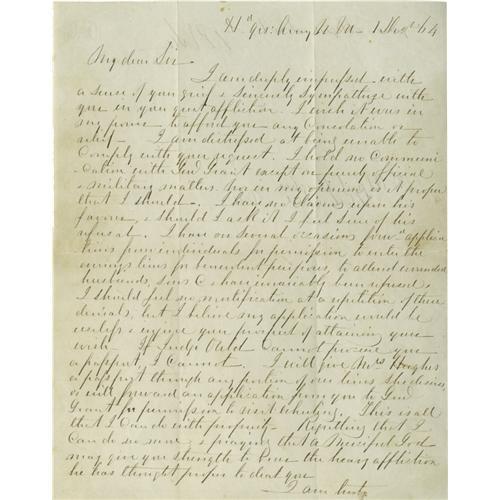 Hd Qrs: Army N Va 1 64
My dear Sir
I am deeply impressed with
a sense of your grief & sincerely sympathise with
you in your great affliction. I wish it was in
my power to afford you any Consolation or
relief — I am distressed at being unable to
Comply with your request. I hold no Communi
cation with Genl Grant except on purely official
& military matters. Nor in my opinion is it proper
that I should. I have no Claims upon his
favour, & should I ask it I feel sure of his
refusal. I have on several occasions forwd applica
tions from individuals for permission to enter the
enemys lines for benevolent purposes, to attend wounded
husbands, sons & have invariably been refused.
I should feel no mortification at a repetition of these
denials, but I believe my application would be
useless & injure your prospect of attaining your
wish — If Judge Ould Cannot procure you
a passport, I Cannot. I will give Mrs Hughes
a passport through any portion of our lines she desires,
or will forward an application from you to Genl
Grant for permission to visit. This is all
that I Can do with propriety — Regretting that I
Can do no more & praying that a Merciful God
may give you strength to bear the heavy affliction
he has thought proper to deal you
I am